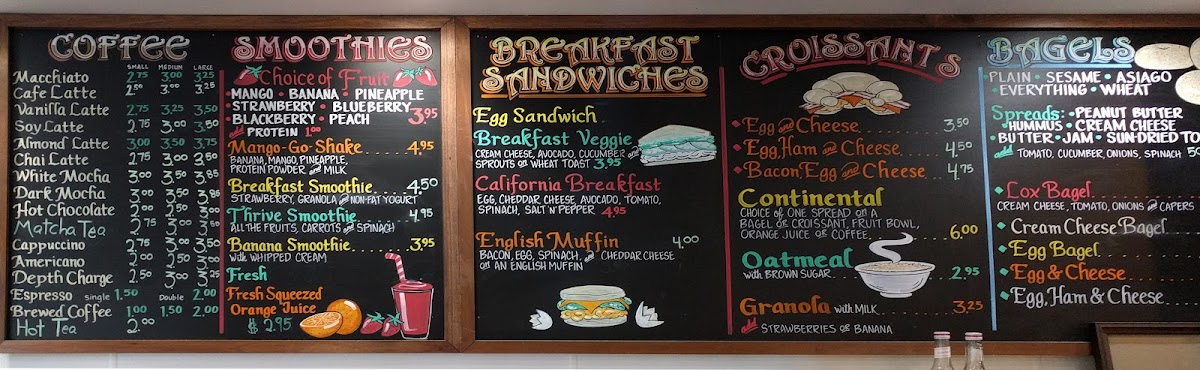 COFFEE
SMALL MEDIUM LARGE
Macchiato 2.75 3.00 3.25
Cafe Latte 3.00 3.25
Vanilla Latte 2.75 3.25 3.50
Soy Latte 2.75 3.00 3.50
Almond Latte 3.00 3.50 3.75
Chai Latte 2.75 3.00
White Mocha 3.00 3.50 3.85
Dark Mocha 3.00 3.50
Hot Chocolate 2.00 2.50
Matcha Tea 2.75 3.00
Cappuccino 2.75 3.00 3.50
Americano 2.00 2.50
Depth Charge 2.50 3.00 3.25
Espresso Single 1.50 Double 2.00
Brewed Coffee 1.00 1.50 2.00
Hot Tea 2.00
SMOOTHIES
Choice of Fruit
MANGO • BANANA • PINEAPPLE
• STRAWBERRY • BLUEBERRY
• BLACKBERRY • PEACH 3.95
add PROTEIN 1.00
Mango-Go-Shake 4.95
BANANA, MANGO, PINEAPPLE,
PROTEIN POWDER and MILK
Breakfast Smoothie 4.50
STRAWBERRY, GRANOLA and NON-FAT YOGURT
Thrive Smoothie 4.95
ALL THE FRUITS, CARROTS and SPINACH
Banana Smoothie 3.95
with WHIPPED CREAM
Fresh
Fresh Squeezed
Orange Juice
$ 2.95
BREAKFAST
SANDWICHES
Egg Sandwich
Breakfast Veggie
CREAM CHEESE, AVOCADO, CUCUMBER and
SPROUTS on WHEAT TOAST 3.95
California Breakfast
EGG, CHEDDAR CHEESE, AVOCADO, TOMATO,
SPINACH, SALT N' PEPPER 4.95
English Muffin 4.00
BACON, EGG, SPINACH, and CHEDDAR CHEESE
on AN ENGLISH MUFFIN
CROISSANTS
• Egg and Cheese 3.50
• Egg, Ham and Cheese 4.50
• Bacon, Egg and Cheese 4.75
Continental
CHOICE of ONE SPREAD on A
BAGEL or CROISSANT, FRUIT BOWL,
ORANGE JUICE or COFFEE 6.00
Oatmeal
with BROWN SUGAR 2.95
Granola with MILK 3.25
add STRAWBERRIES or BANANA
BAGELS
• PLAIN • SESAME • ASIAGO
• EVERYTHING • WHEAT
Spreads: • PEANUT BUTTER
• HUMMUS • CREAM CHEESE
• BUTTER • JAM • SUN-DRIED TO
add TOMATO, CUCUMBER, ONIONS, SPINACH 50
• Lox Bagel
CREAM CHEESE, TOMATO, ONIONS and CAPERS
• Cream Cheese Bagel
• Egg Bagel
• Egg & Cheese
• Egg, Ham & Cheese